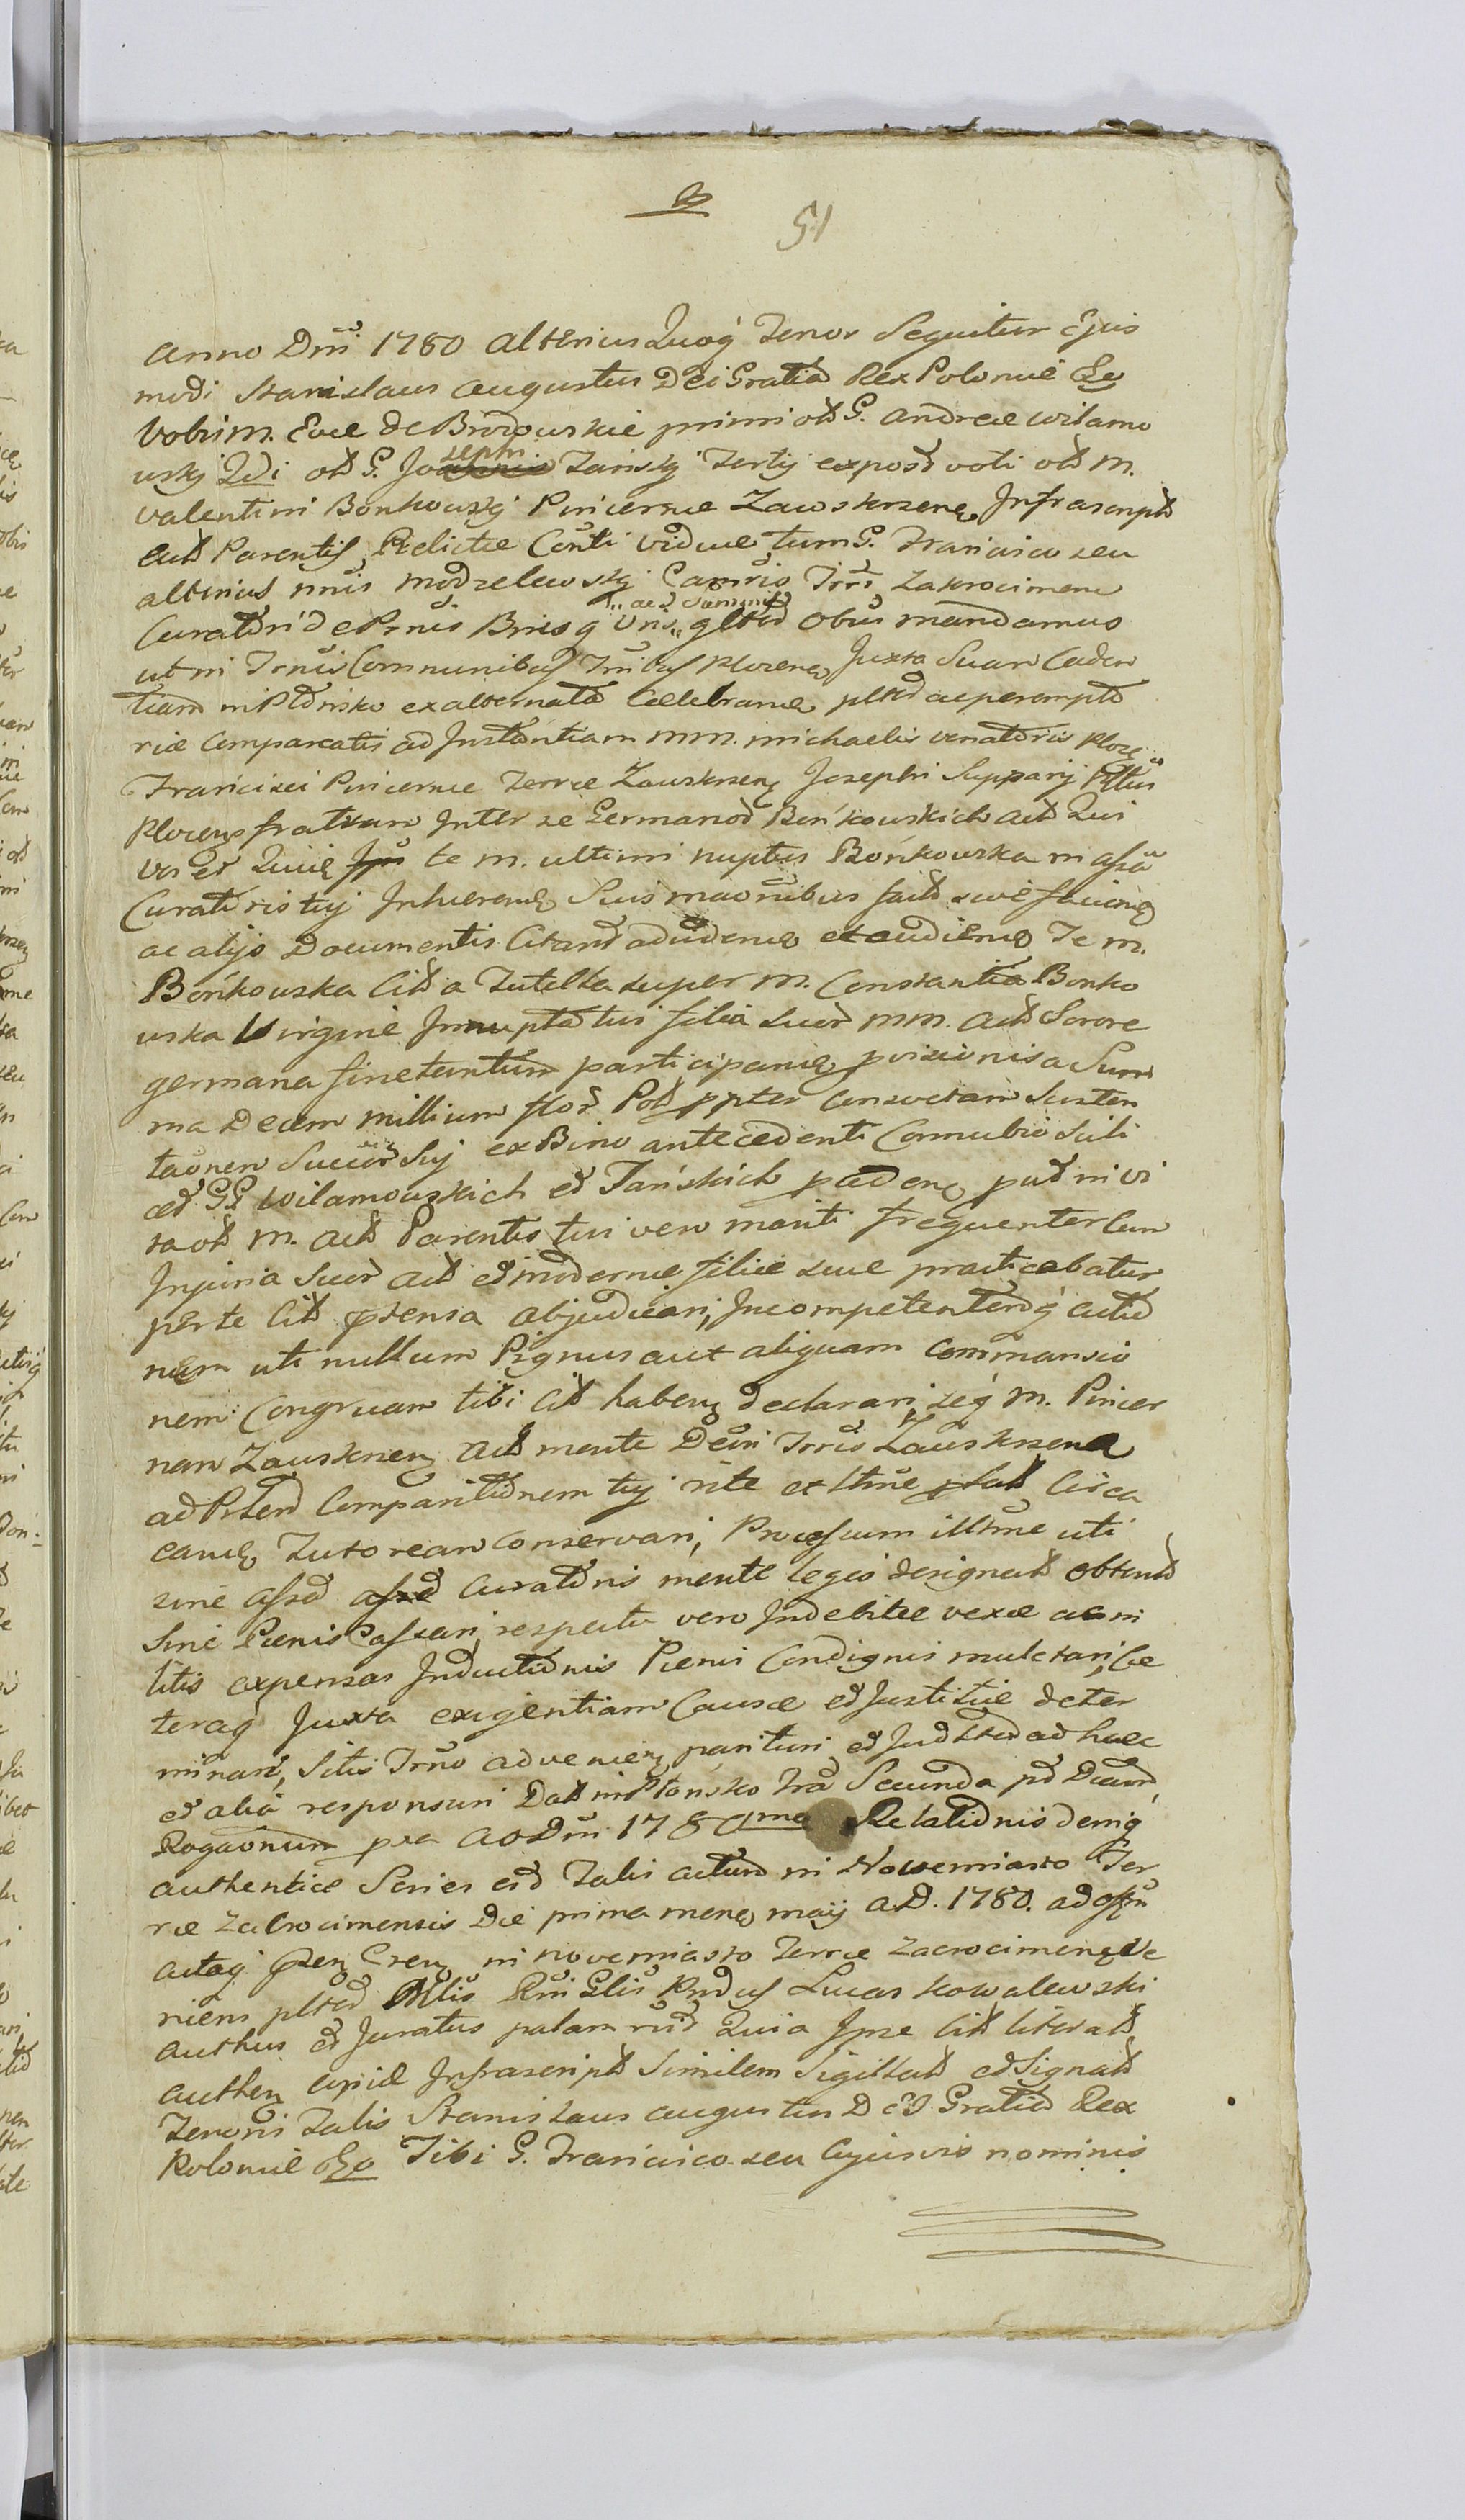 51
Anno Dni 1780 alterius Quoq́ Tenor Sequitur Ejus
modi Stanislaus Augustus Dei Gratia Rex Poloniæ &c
Vobis M. Evæ de Brodowskie primi olt G. Andreæ Wilamo
wskj 2di olt G. Josephi Tanskj Tertij expost voti olt M.
Valentini Bonkowskj Pincernæ Zawskrzeng Infrascript
Actt Parentis Relictæ Conti viduæ tum G. Francisco seu
alterius nnis Modzelewskj Camrio Trri Zakrocimen
Curatori de Prnis Bnis q Vris „ac Summis„ gltt Obus mandamus
ut in Trnis Communibus Trribus Plocens Juxta Suam Caden
tiam in Płońsko ex alternata Celebrand pltt ac perempto
rie Compareatis ad Instantiam MM. Michaelis Venatoris Ploce
Francisci Pincernæ Terræ Zawskrzen Josephi Supparij Pltus
Plocens fratrum Inter se Germanor Bońkowskich Actt Qui
Vos et Quilt te M. ultimi nuptus Bońkowska in assa
Curatoris tuj Inhærend Suis maonibus fact sive fiiend
ac alijs Documentis Citand adudend et audiend Te M.
Bońkowska Citt a Tutella super M. Constantia Bonko
wska Virgine Innupta tui filia Suor MM. Actt Sorore
germana sine tantum participand provisionis a Sum
ma Decem millium flor Pol ppter Consvetam Susten
taonem Succor Suj ex Bino antecedenti Connubio Suli
cet GG Wilamowskich et Tańskich pædeng put in vi
ta olt M. Actt Parentis tui vero mariti frequenter Cum
Injuria Suor Actt et modernæ filiæ suæ practicabatur
per te Citt prætensa abjudicari, Incompetentemq́ actio
nem uti nullum Pignus aut aliquam Commansio
nem Congruam tibi Citt habeng declarari, seq́ M. Pincer
nam Zawskrzen Actt mente Devi Trris Zawskrzena
ad Prtem Comparitionem tuj rite et lttme fact Circa
eand Tutoream conservari, Processum illtme uti
sine assa Curatoris mente legis designatt obtent
Sine Pœnis Cassari, respectu vero Indebitæ vexæ ac in
litis expensas Inductionis Pœnis Condignis mulctari, Cæ
teraq́ Juxta exigentiam Causæ et Justitiæ deter
minari, Sitis Trno advenien parituri et Judltt ad hæc
et alia responsuri Datt in Płońsko Fra Secunda pt Dcam
Rogaonum pra ao Dni 1780ma Relationis deniq́
authenticæ Series est Talis Actum in Nowemiasto Ter
ræ Zacrocimensis Die prima mens maij A.D. 1780. ad offm
actaq́ præs Cren in Novemiasto Terræ Zacrocimens Ve
niens pltt Mlis Rni Glis Prvdus Lucas Kowalewski
authus et Juratus palam rnt Quia Ipse Citt literatt
authen Copiæ Infrascript Similem Sigillatt et Signatt
Tenoris Talis Stanislaus Augustus Dei Gratia Rex
Poloniæ &c Tibi G. Francisco seu Cujusvis nominis